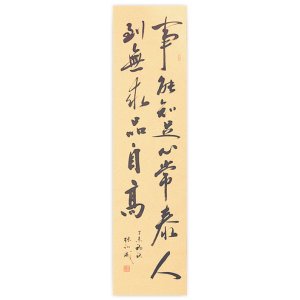 事能知足心常泰人
到無求品自高